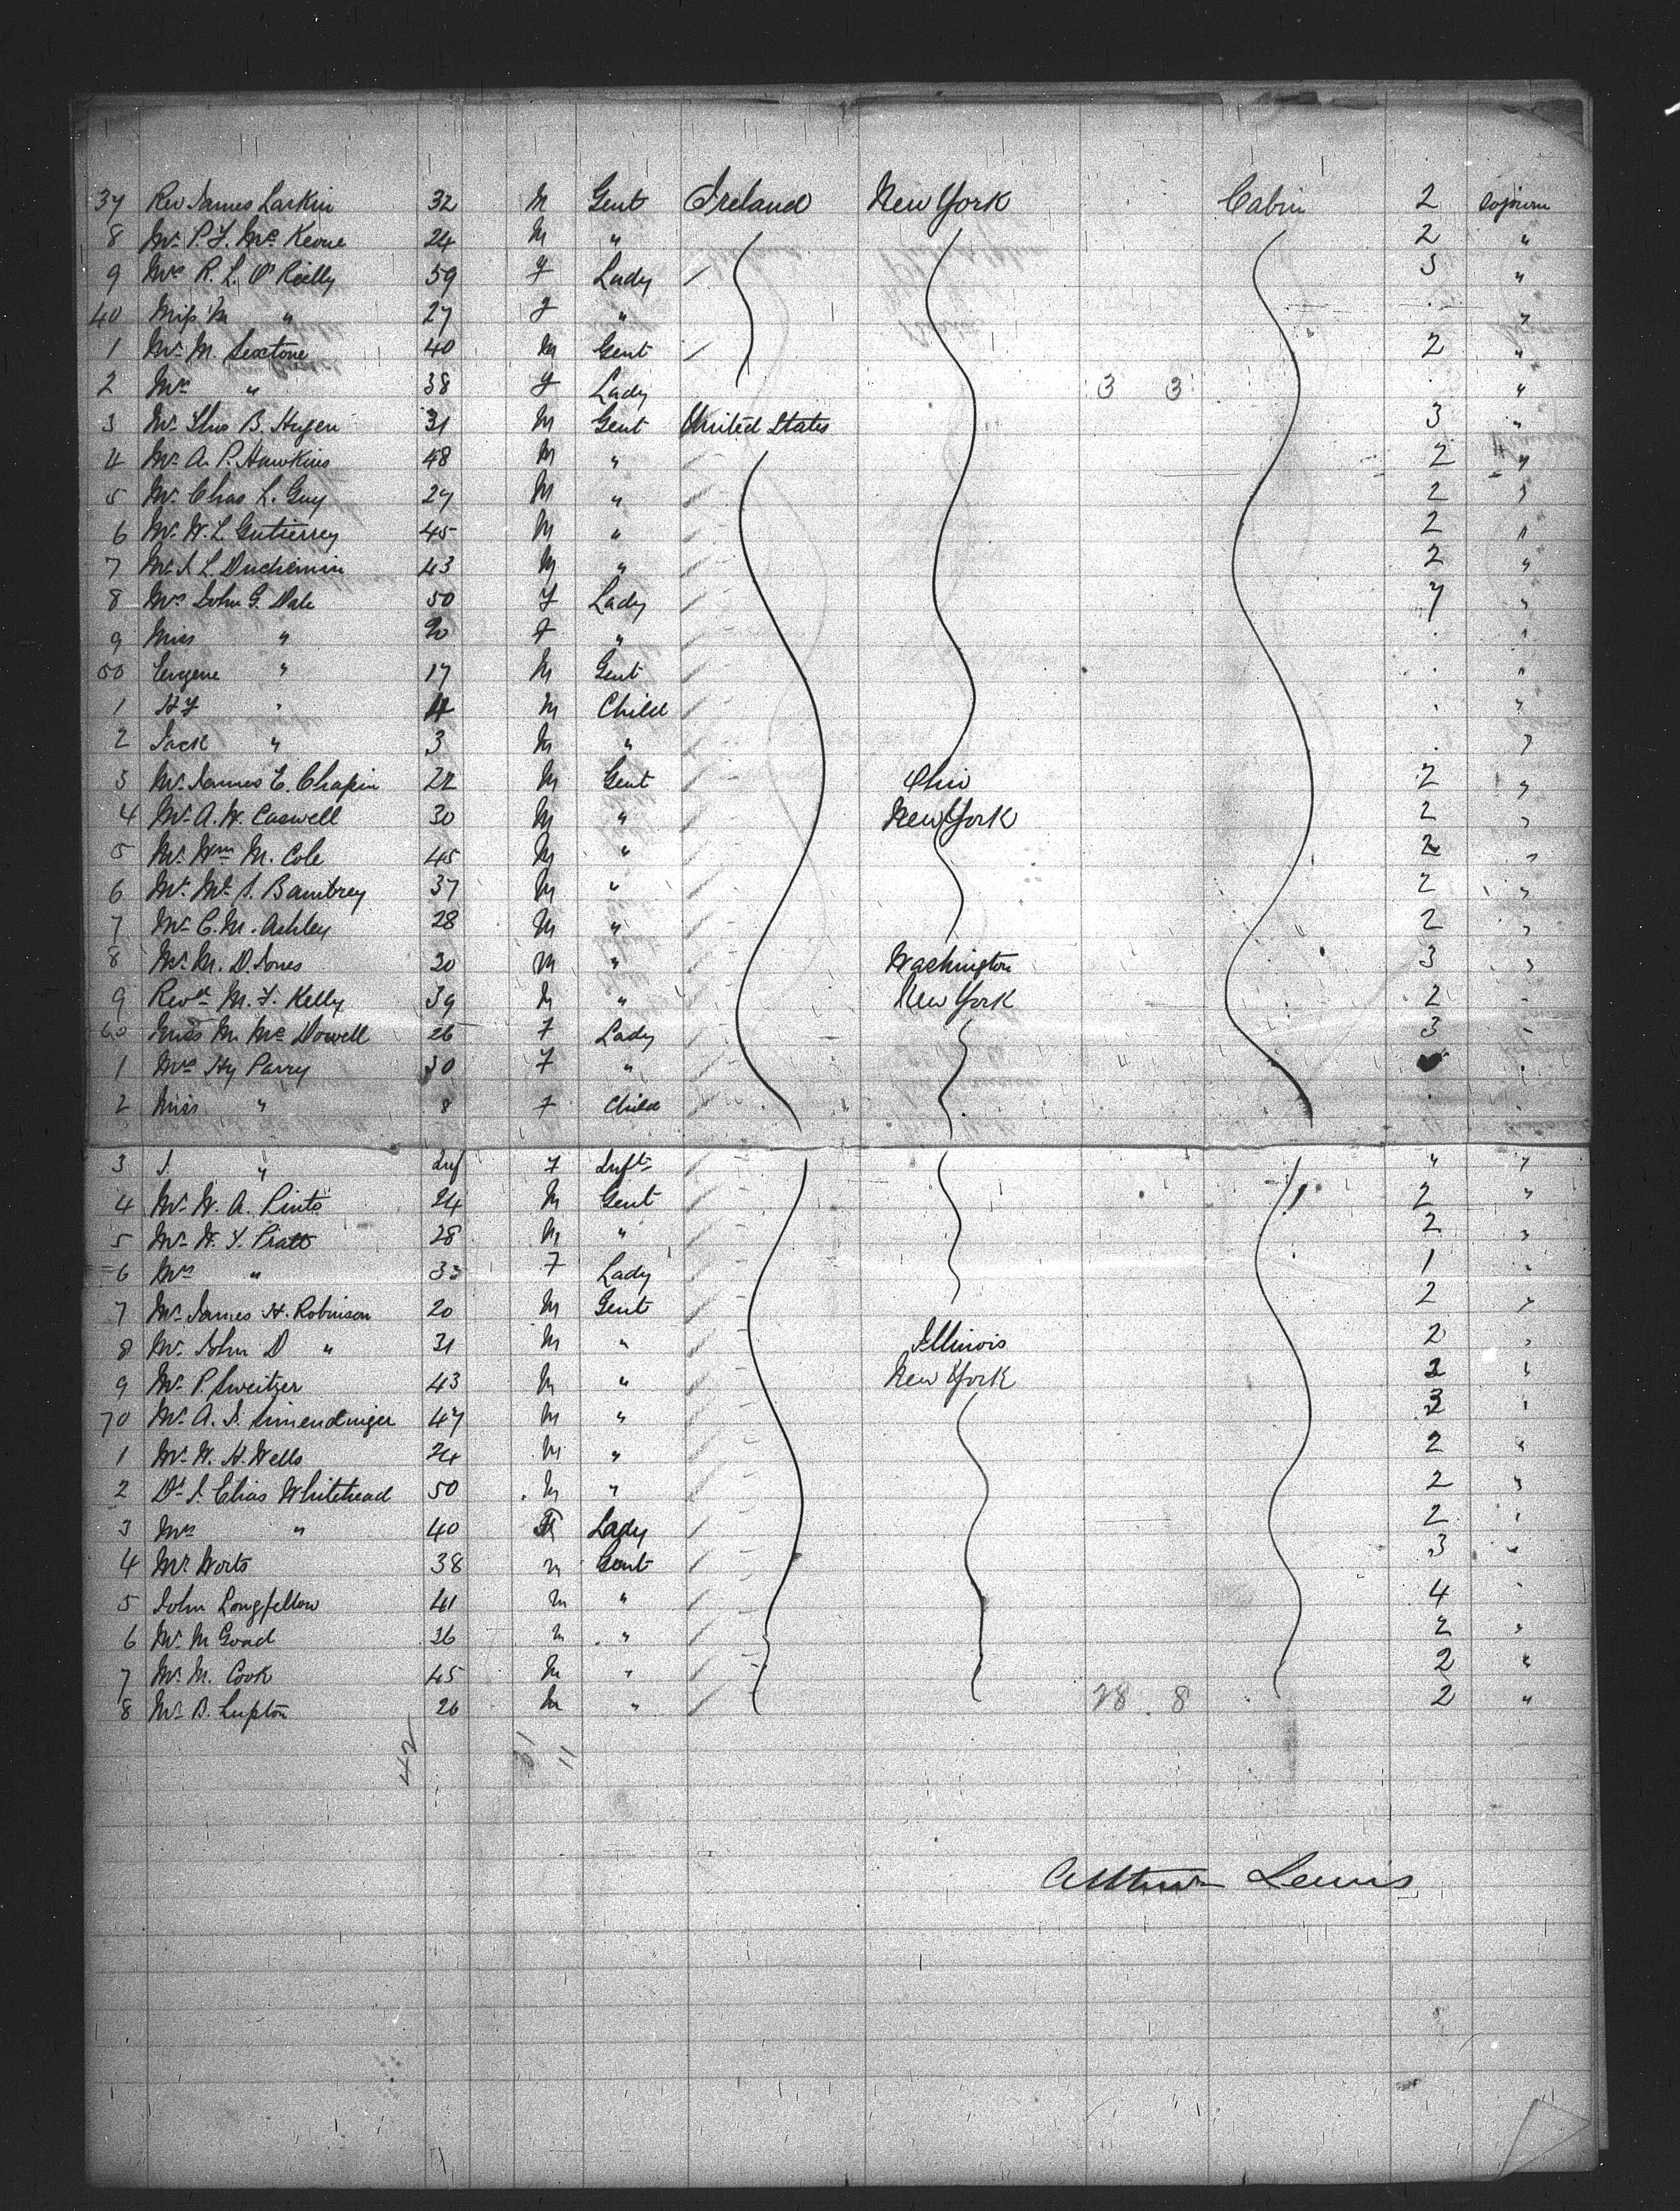 37 Rev James Larkin 32 M Gent Ireland New York Cabin 2 Sojourn
8 Mr. P. F. Mc Keone 24 M " 2 "
9 Mrs R. L. O'Reilly 59 F Lady 5 "
40 Miss M " 27 F " . "
1 Mr. M. Sextone 40 M Gent 2 "
2 Mrs " 38 F Lady 3 3 . "
3 Mr. Theo B. 31 M Gent United States 3 "
4 Mr. A. P. Hawkins 48 M " 2 "
5 Mr. Chas L. Guy 27 M " 2 "
6 Mr. W. L. Gutierrey 45 M " 2 "
7 Mr. J. L. Duchemin 43 M " 2 "
8 Mrs John G. Dale 50 F Lady 7 "
9 Miss " 20 F " . "
50 Eugene " 17 M Gent . "
1 " 4 M Child . "
2 Jack " 3 M " . "
3 Mr. James E. Chapin 22 M Gent Ohio 2 "
4 Mr. A. W. Caswell 30 M " New York 2 "
5 Mr. Wm M. Cole 45 M " 2 "
6 Mr. 37 M " 2 "
7 Mr. C. M. Ashley 28 M " 2 "
8 Mr. M. D. Jones 30 M " Washington 3 "
9 Revd M. F. Kelly 39 M " New York 2 "
60 Miss M. Mc Dowell 26 F Lady 3 "
1 Mrs Hy Parry 30 F " "
2 Miss " 8 F Child . "
3 J. " Inf F Inft " "
4 Mr. W. A. Pinto 24 M Gent 2 "
5 Mr. W. Y. Pratt 28 M " 2 "
6 Mrs " 33 F Lady 1 "
7 Mr. James H. Robinson 20 M Gent 2 "
8 Mr. John D " 31 M " Illinois 2 "
9 Mr. P. Sweitzer 43 M " New York 2 "
70 Mr. A. J. Simendinger 47 M " 3 "
1 Mr. W. H. Wells 24 M " 2 "
2 Dr. J. Elias Whitehead 50 M " 2 "
3 Mrs " 40 F Lady 2 "
4 Mr Worts 38 M Gent 3 "
5 John Longfellow 41 M " 4 "
6 Mr. M Goad 26 M " 2 "
7 Mr. M. Cook 45 M " 2 "
8 Mr. B. Lupton 26 M " 28 8 2 "
42 31 11
Lewis